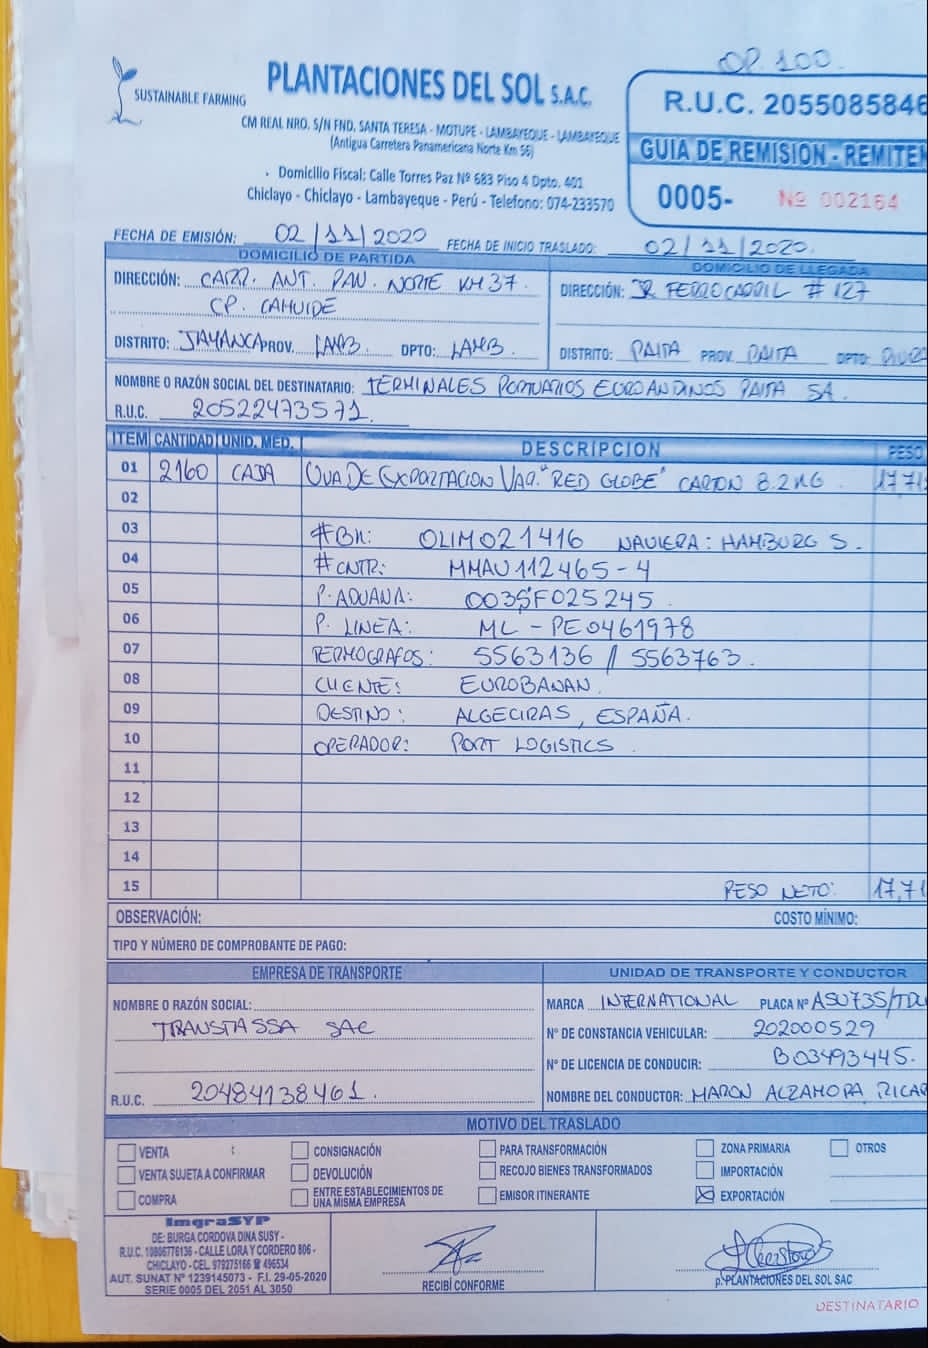 OP. 100.
SUSTAINABLE FARMING
PLANTACIONES DEL SOL S.A.C.
CM REAL NRO. S/N FND. SANTA TERESA - MOTUPE - LAMBAYEQUE - LAMBAYEQUE
(Antigua Carretera Panamericana Norte Km 56)
Domicilio Fiscal: Calle Torres Paz Nº 683 Piso 4 Dpto. 401
Chiclayo - Chiclayo - Lambayeque - Perú - Telefono: 074-233570
R.U.C. 2055085846
GUIA DE REMISION - REMITEN
0005- Nº 002164
FECHA DE EMISIÓN: 02/11/2020 FECHA DE INICIO TRASLADO: 02/11/2020.
DOMICILIO DE PARTIDA
DIRECCIÓN: CARR. ANT. PAN. NORTE KM 37.
CP. CAHUIDE
DISTRITO: JAYANCA PROV. LAMB. DPTO: LAMB.
DOMICILIO DE LLEGADA
DIRECCIÓN: JR FERROCARRIL # 127
DISTRITO: PAITA PROV. PAITA DPTO: PIURA
NOMBRE O RAZÓN SOCIAL DEL DESTINATARIO: TERMINALES PORTUARIOS EUROANDINOS PAITA SA.
R.U.C. 20522473571.
ITEM CANTIDAD UNID. MED. DESCRIPCION PESO
01 2160 CAJA UVA DE EXPORTACION VAR. "RED GLOBE" CARTON 8.2KG. 17,71
02
03 #BK: OLIM021416 NAVIERA: HAMBURG S.
04 #CNTR: MMAU112465-4
05 P. ADUANA: 0035F025245
06 P. LINEA: ML-PE0461978
07 TERMOGRAFOS: 5563136 // 5563763.
08 CLIENTE: EUROBANAN.
09 DESTINO: ALGECIRAS, ESPAÑA.
10 OPERADOR: PORT LOGISTICS
11
12
13
14
15 PESO NETO: 17,71
OBSERVACIÓN: COSTO MÍNIMO:
TIPO Y NÚMERO DE COMPROBANTE DE PAGO:
EMPRESA DE TRANSPORTE
NOMBRE O RAZÓN SOCIAL:
TRANSTASSA SAC
R.U.C. 20484138461.
UNIDAD DE TRANSPORTE Y CONDUCTOR
MARCA INTERNATIONAL PLACA Nº ASU735/TDU
Nº DE CONSTANCIA VEHICULAR: 202000529
Nº DE LICENCIA DE CONDUCIR: B03493445.
NOMBRE DEL CONDUCTOR: MARON ALZAMORA RICAR
MOTIVO DEL TRASLADO
VENTA CONSIGNACIÓN PARA TRANSFORMACIÓN ZONA PRIMARIA OTROS
VENTA SUJETA A CONFIRMAR DEVOLUCIÓN RECOJO BIENES TRANSFORMADOS IMPORTACIÓN
COMPRA ENTRE ESTABLECIMIENTOS DE UNA MISMA EMPRESA EMISOR ITINERANTE EXPORTACIÓN
ImgraSYP
DE: BURGA CORDOVA DINA SUSY -
R.U.C. 10806776136 - CALLE LORA Y CORDERO 806 -
CHICLAYO - CEL. 979275166 ☎ 496534
AUT. SUNAT Nº 1239145073 - F.I. 29-05-2020
SERIE 0005 DEL 2051 AL 3050
RECIBÍ CONFORME
p. PLANTACIONES DEL SOL SAC
DESTINATARIO